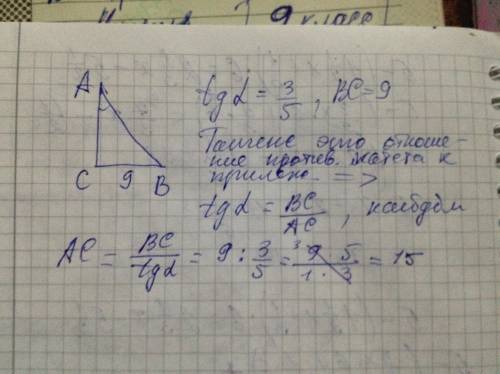 9 класс
A
C 9 B
tg α = 3/5, BC=9
Тангенс это отноше-
ние против. катета к
прилеж. =>
tg α = BC/AC, найдём
AC = BC/tg α = 9 : 3/5 = 9 · 5/1 · 3 = 15